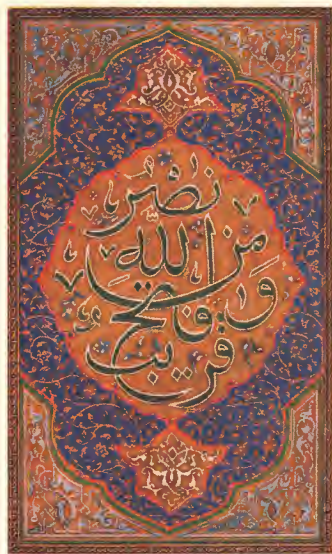 نصر
من الله
وفتح
قريب